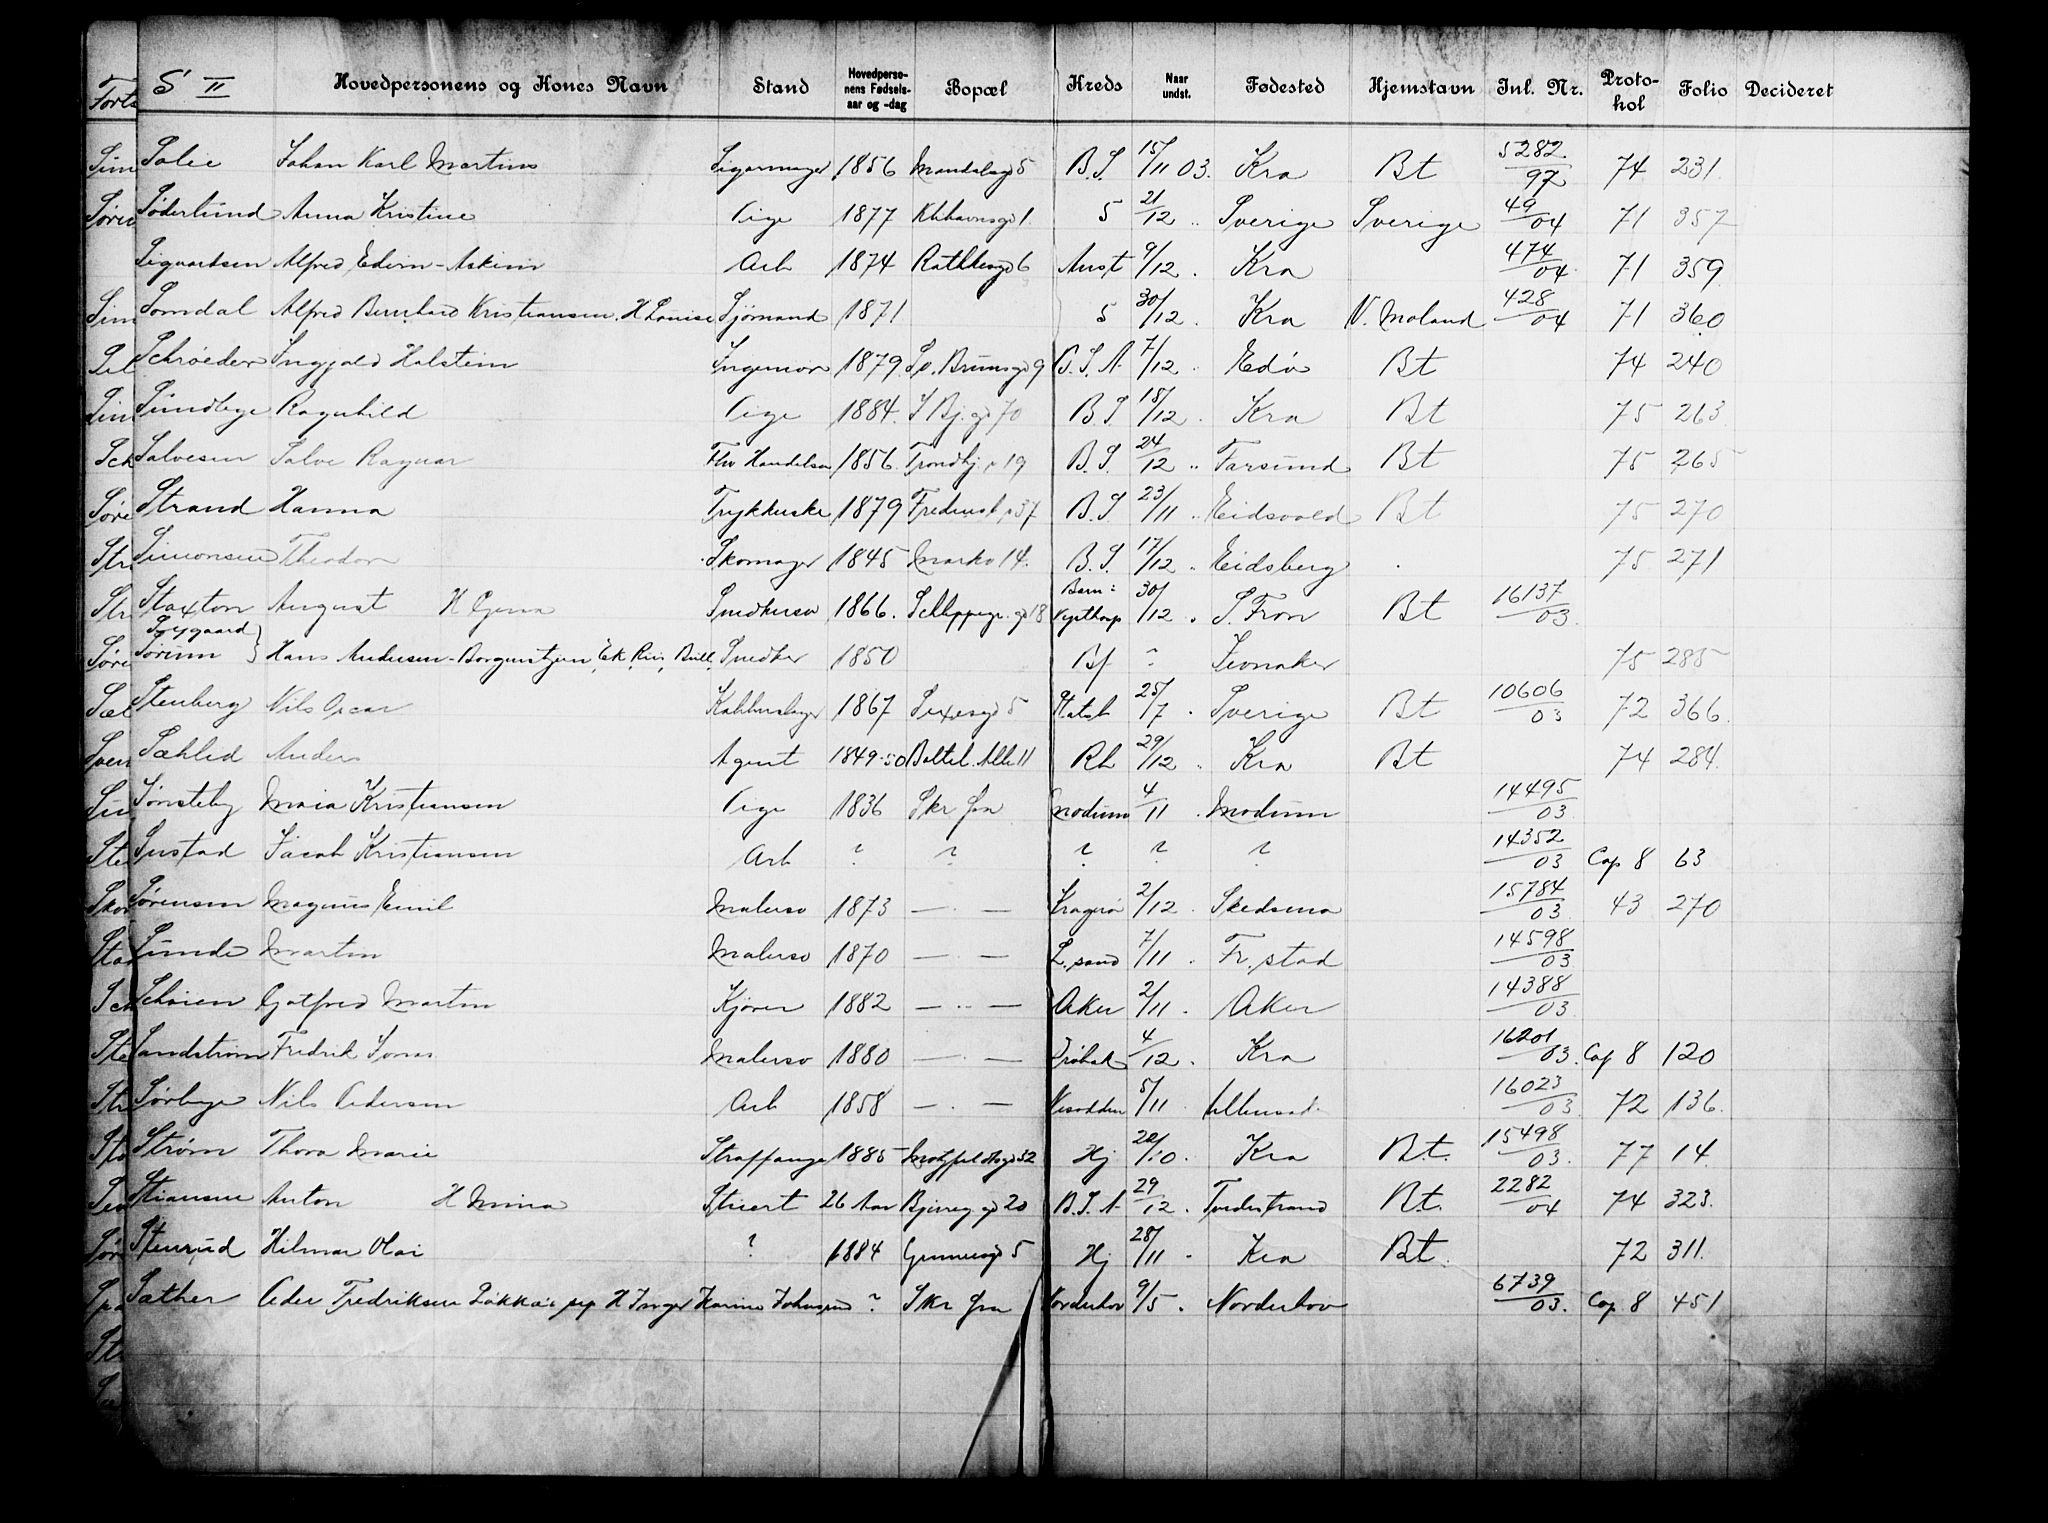 S II Hovedpersonens og Kones Navn Stand Hovedpersonens Fødselsaar og -dag Bopæl Kreds Naar undst. Fødested Hjemstavn Inl. Nr. Protokol Folio Decideret
Johan Karl Martins 1856 Mandalsgd 5 B.S. 15/11 03. Kra Bt 5282/97 74 231.
Søderlund Anna Kristine Pige 1877 Kbhavnsgd 1. 5 21/12 " Sverige Sverige 49/04 71 357
Siguartsen Alfred Edvin-Askim Arb 1874 Rathkesgd 6 Anst 9/12 . Kra 474/04. 71 359
Somdal Alfred Bernhard Kristiansen. H Louise Sjømand 1871 5 30/12 . Kra V. Moland 428/04 71 360
Schrøeder Ingjald Halstein Ingeniør 1879 Sv. Brunsgd 9 7/12 " Edø Bt 74 240
Sundbye Ragnhild Pige 1884. 70 B.S 18/12 . Kra Bt 75 263
Salvesen Salve Ragnar Fhv Handelsm 1856. Trondhj. v 19 B.S. 24/12 " Farsund Bt 75 265
Strand Hanna 1879 37 B.S 23/11 " Eidsvold Bt 75 270
Simonsen Theodor Skomager 1845 Markv 14. B.S. 17/12 " Eidsberg 75 271
Staxton August H Gina Snedkersv 1866. 18 30/12 . S. Fron Bt 16137/03.
Sørum } Hans Andersen-Borgenstjern, Ek, Riis, Bull, Snedker 1850 ? Jevnaker 75 285
Stenberg Nils Oscar 1867 Sexesgd 5 25/7 . Sverige Bt 10606/03 72 366.
Sæhlid Anders Agent 1849-50 Baltel. Alle 11 Rh 29/12 " Kra Bt 74 284.
Sønsteby Maia Kristiansen Pige 1836 Modum 4/11 . Modum 14495/03.
Sustad Jacob Kristiansen Arb ? ? ? ? ? 14352/03 Cop 8 63
Sørensen Magnus Emil Malersv 1873 — . — Kragerø 2/12 . Skedsmo 15784/03. 43 270
Sunde Martin Malersv 1870 — . — L. sand 7/11 . Fr. stad 14598/03
Schøien Gotfred Martin Kjører 1882 — . . — Aker 2/11 . Aker 14388/03.
Sandstrøm Fredrik Malersv 1880 — . — Drøbak 4/12 . Kra 16201/03. Cop 8 120
Sørbye Nils Pedersen Arb 1858 — . — Nesodden 5/11 . Ullensak. 16023/03. 72 136.
Strøm Thora Marie Straffange 1885 Motzfeldtsgd 32 Hj 20/10. Kra Bt. 15498/03. 77 14.
Stiansen Anton H Mina Stuert 26 Aar 20 29/12 . Tvedestrand Bt. 2282/04 74 323.
Stenrud Hilmar Olai ? 1884 5 Hj 28/11 - Kra Bt. 72 311.
Sæther Peder Fredriksen Løkka H Inger Karine Johnsen ? Norderhov 9/5 . Norderhov 6739/03. Cop. 8 451